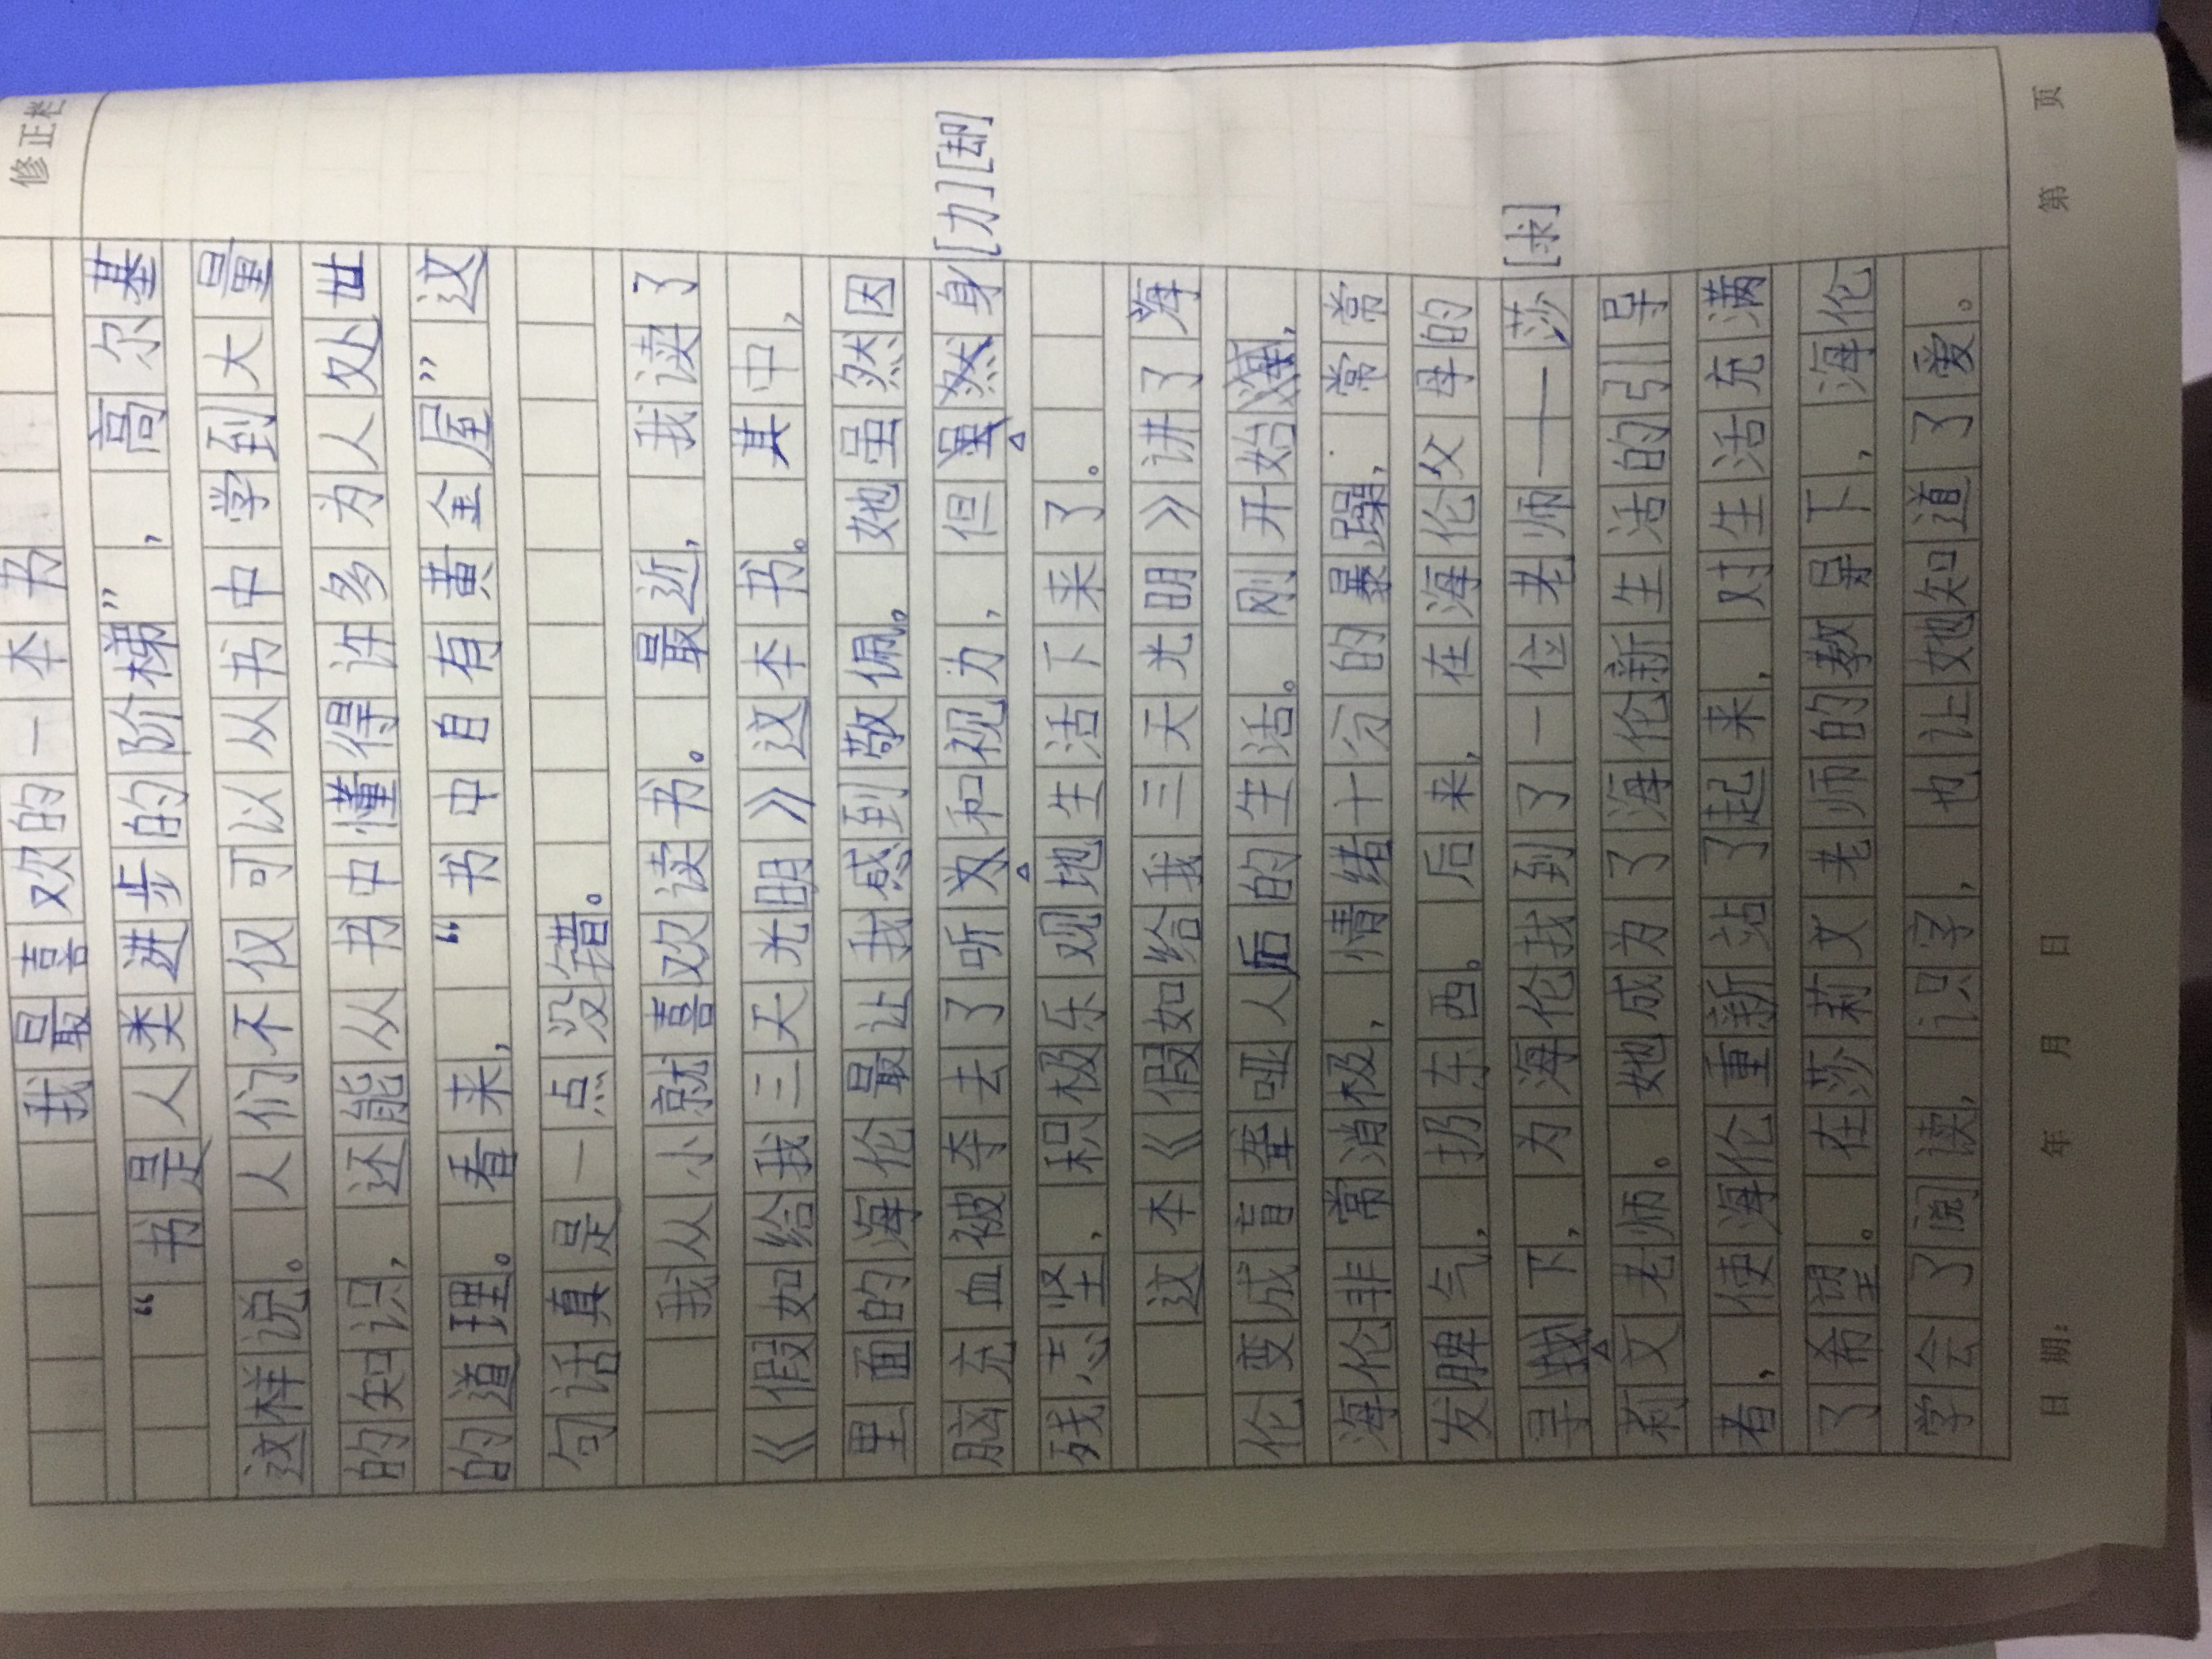 修正栏
我最喜欢的一本书
“书是人类进步的阶梯”，高尔基
这样说。人们不仅可以从书中学到大量
的知识，还能从书中懂得许多为人处世
的道理。看来，“书中自有黄金屋”这
句话真是一点没错。
我从小就喜欢读书。最近，我读了
《假如给我三天光明》这本书。其中，
里面的海伦最让我感到敬佩。她虽然因
脑充血被夺去了听和视力，但身[力][却]
残志坚，积极乐观地生活下来了。
这本《假如给我三天光明》讲了海
伦变成盲聋哑人后的生活。刚开始，
海伦非常消极，情绪十分的暴躁，常常
发脾气，扔东西。后来，在海伦父母的
寻下，为海伦找到了一位老师——莎[求]
莉文老师。她成为了海伦新生活的引导
者，使海伦重新站了起来，对生活充满
了希望。在莎莉文老师的教导下，海伦
学会了阅读，识字，也让她知道了爱。
日期： 年 月 日 第 页